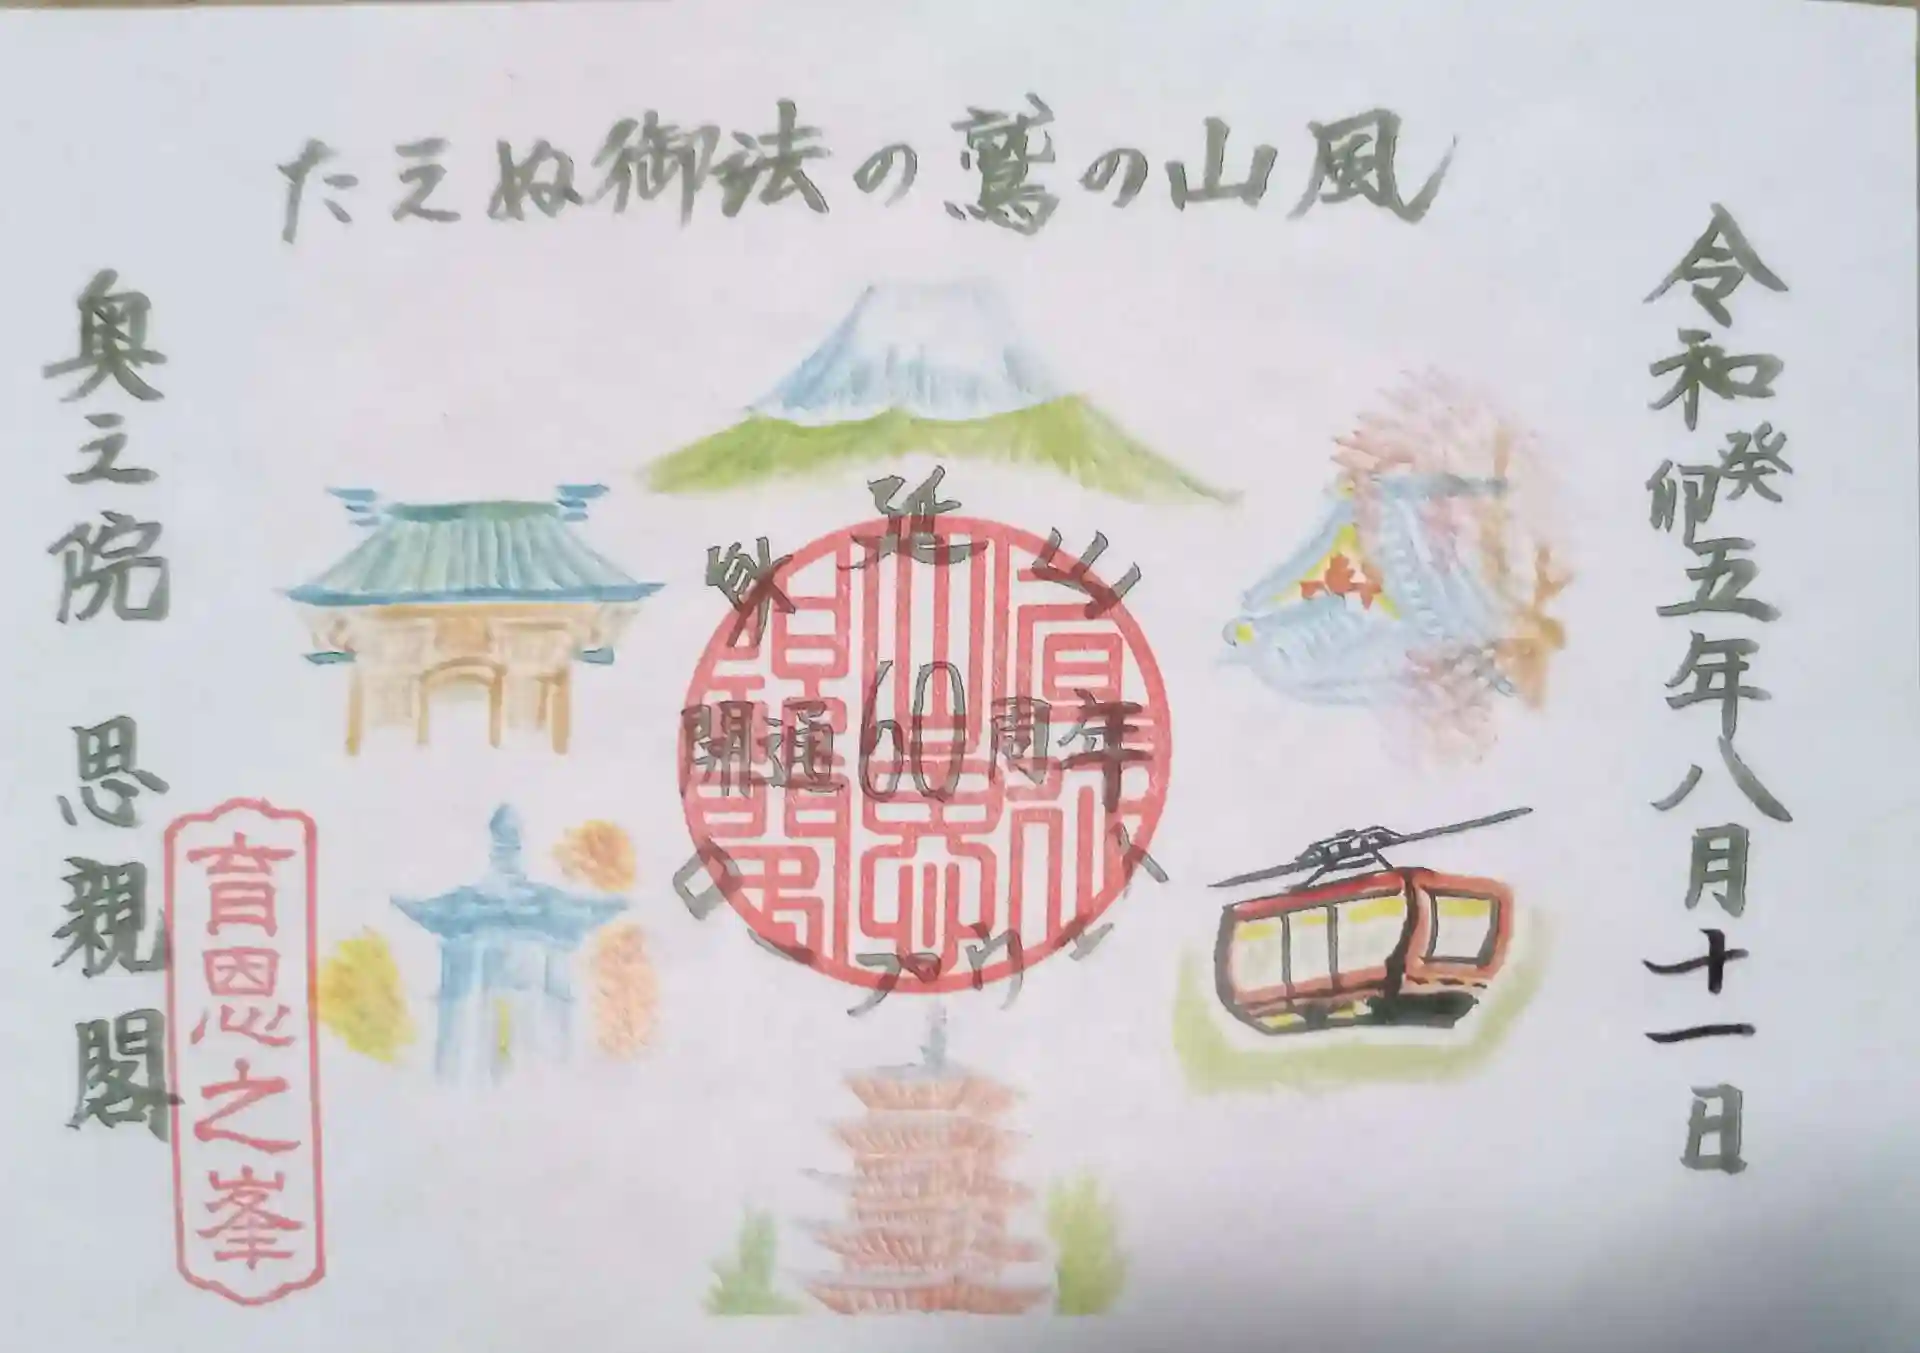 たえぬ御法の鷲の山風
令和癸卯五年八月十一日
身延山
開通60周年
ロープウェイ
奥之院 思親閣
育恩之峯